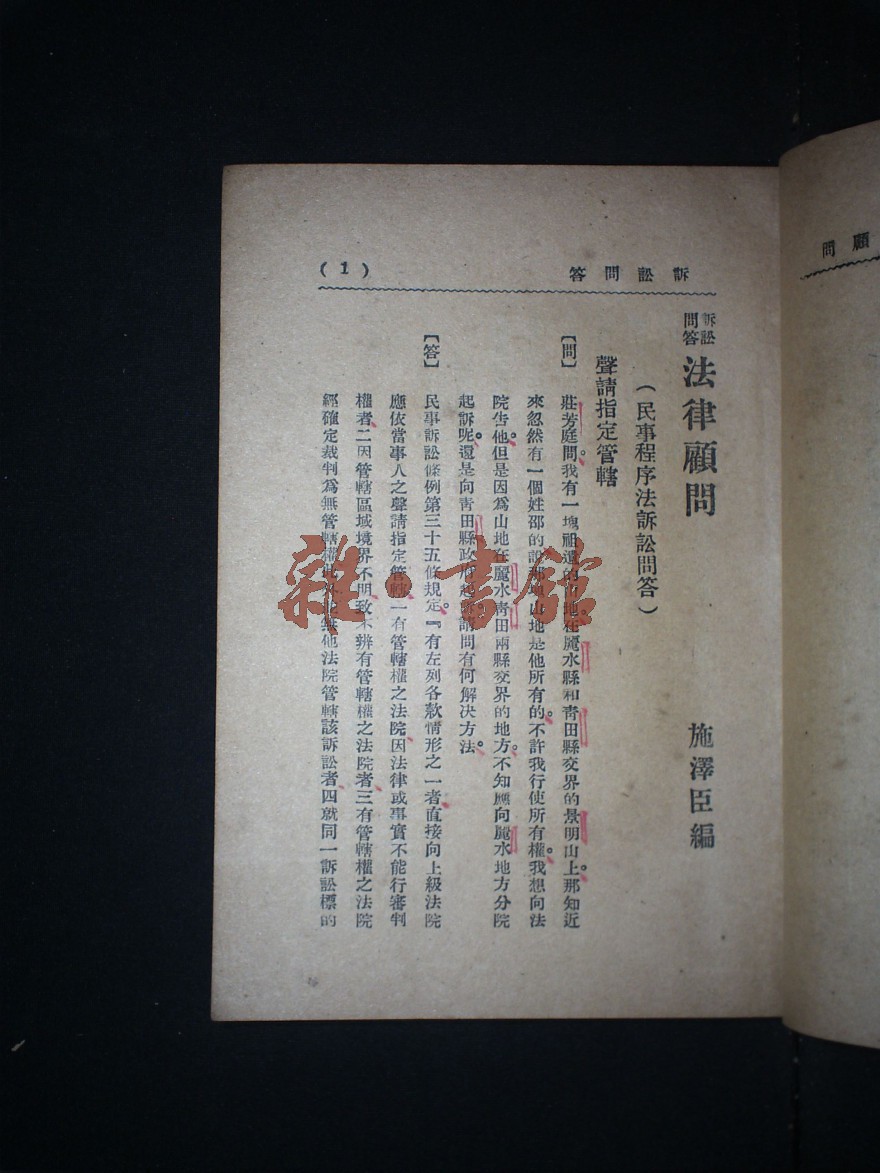 訴訟問答
(1)
訴訟問答 法律顧問
施澤臣編
(民事程序法訴訟問答)
聲請指定管轄
【問】 莊芳庭問。我有一塊祖遺的山地。在麗水縣和青田縣交界的景明山上。那知近
來忽然有一個姓邵的說那塊山地是他所有的。不許我行使所有權。我想向法
院告他。但是因爲山地在麗水青田兩縣交界的地方。不知應向麗水地方分院
起訴呢。還是向青田縣政府起訴。請問有何解决方法。
【答】 民事訴訟條例第三十五條規定。『有左列各款情形之一者、直接向上級法院
應依當事人之聲請指定管轄、一有管轄權之法院、因法律或事實不能行審判
權者、二因管轄區域境界不明、致不辨有管轄權之法院者、三有管轄權之法院
經確定裁判爲無管轄權、此外 無他法院管轄該訴訟者、四就同一訴訟標的
顧問
雜·書館